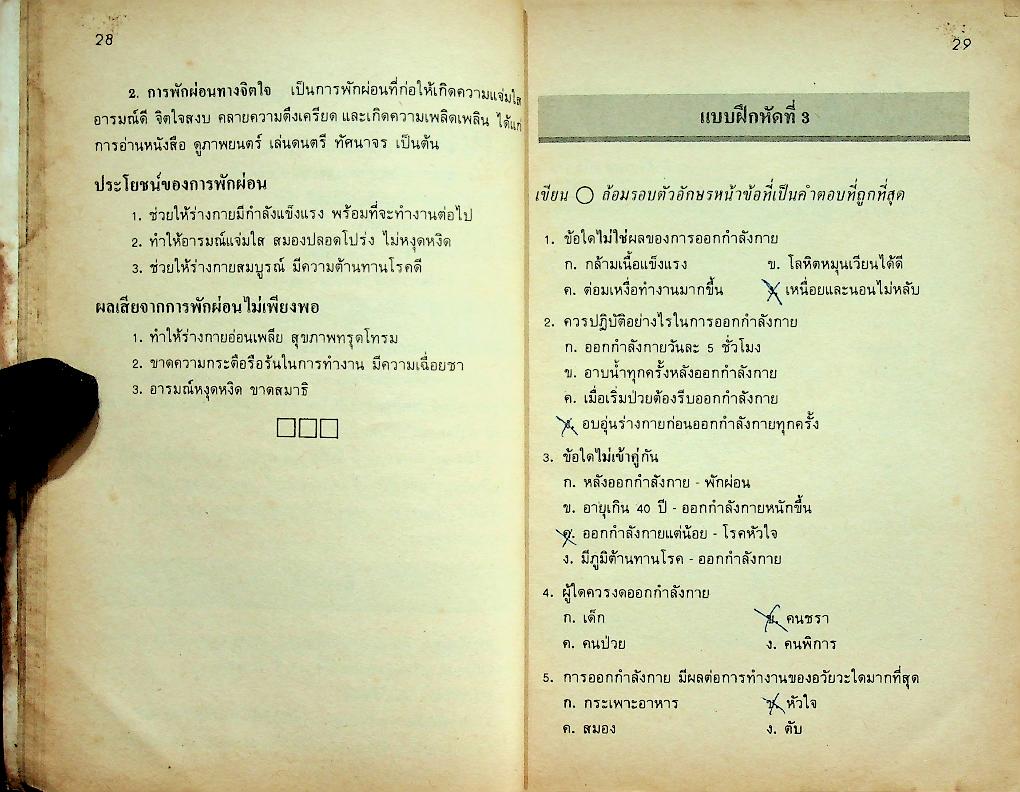 28
2. การพักผ่อนทางจิตใจ เป็นการพักผ่อนที่ก่อให้เกิดความแจ่มใส
อารมณ์ดี จิตใจสงบ คลายความตึงเครียด และเกิดความเพลิดเพลิน ได้แก่
การอ่านหนังสือ ดูภาพยนตร์ เล่นดนตรี ทัศนาจร เป็นต้น
ประโยชน์ของการพักผ่อน
1. ช่วยให้ร่างกายมีกำลังแข็งแรง พร้อมที่จะทำงานต่อไป
2. ทำให้อารมณ์แจ่มใส สมองปลอดโปร่ง ไม่หงุดหงิด
3. ช่วยให้ร่างกายสมบูรณ์ มีความต้านทานโรคดี
ผลเสียจากการพักผ่อนไม่เพียงพอ
1. ทำให้ร่างกายอ่อนเพลีย สุขภาพทรุดโทรม
2. ขาดความกระตือรือร้นในการทำงาน มีความเฉื่อยชา
3. อารมณ์หงุดหงิด ขาดสมาธิ
29
แบบฝึกหัดที่ 3
เขียน ◯ ล้อมรอบตัวอักษรหน้าข้อที่เป็นคำตอบที่ถูกที่สุด
1. ข้อใดไม่ใช่ผลของการออกกำลังกาย
ก. กล้ามเนื้อแข็งแรง ข. โลหิตหมุนเวียนได้ดี
ค. ต่อมเหงื่อทำงานมากขึ้น ง. เหนื่อยและนอนไม่หลับ
2. ควรปฏิบัติอย่างไรในการออกกำลังกาย
ก. ออกกำลังกายวันละ 5 ชั่วโมง
ข. อาบน้ำทุกครั้งหลังออกกำลังกาย
ค. เมื่อเริ่มป่วยต้องรีบออกกำลังกาย
ง. อบอุ่นร่างกายก่อนออกกำลังกายทุกครั้ง
3. ข้อใดไม่เข้าคู่กัน
ก. หลังออกกำลังกาย - พักผ่อน
ข. อายุเกิน 40 ปี - ออกกำลังกายหนักขึ้น
ค. ออกกำลังกายแต่น้อย - โรคหัวใจ
ง. มีภูมิต้านทานโรค - ออกกำลังกาย
4. ผู้ใดควรงดออกกำลังกาย
ก. เด็ก ข. คนชรา
ค. คนป่วย ง. คนพิการ
5. การออกกำลังกาย มีผลต่อการทำงานของอวัยวะใดมากที่สุด
ก. กระเพาะอาหาร ข. หัวใจ
ค. สมอง ง. ตับ